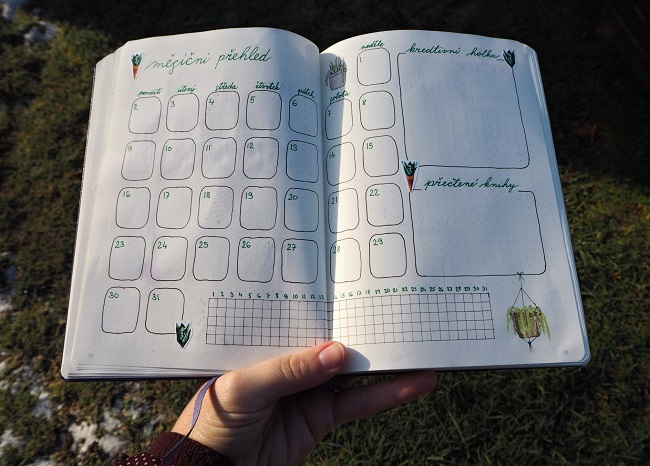 měsíční přehled
pondělí úterý středa čtvrtek pátek sobota neděle
1
2 3 4 5 6 7 8
9 10 11 12 13 14 15
16 17 18 19 20 21 22
23 24 25 26 27 28 29
30 31
1 2 3 4 5 6 7 8 9 10 11 12 13 15 16 17 18 19 20 21 22 23 24 25 26 27 28 29 30 31
kreativní holka
přečtené knihy